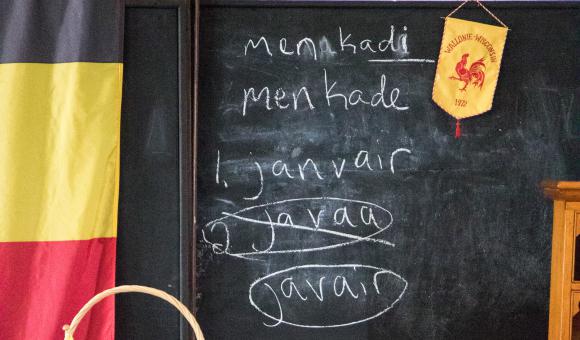 menakadi
menkade
1. janvair
2 javaa
javair
WALLONIE-WISCONSIN
1972